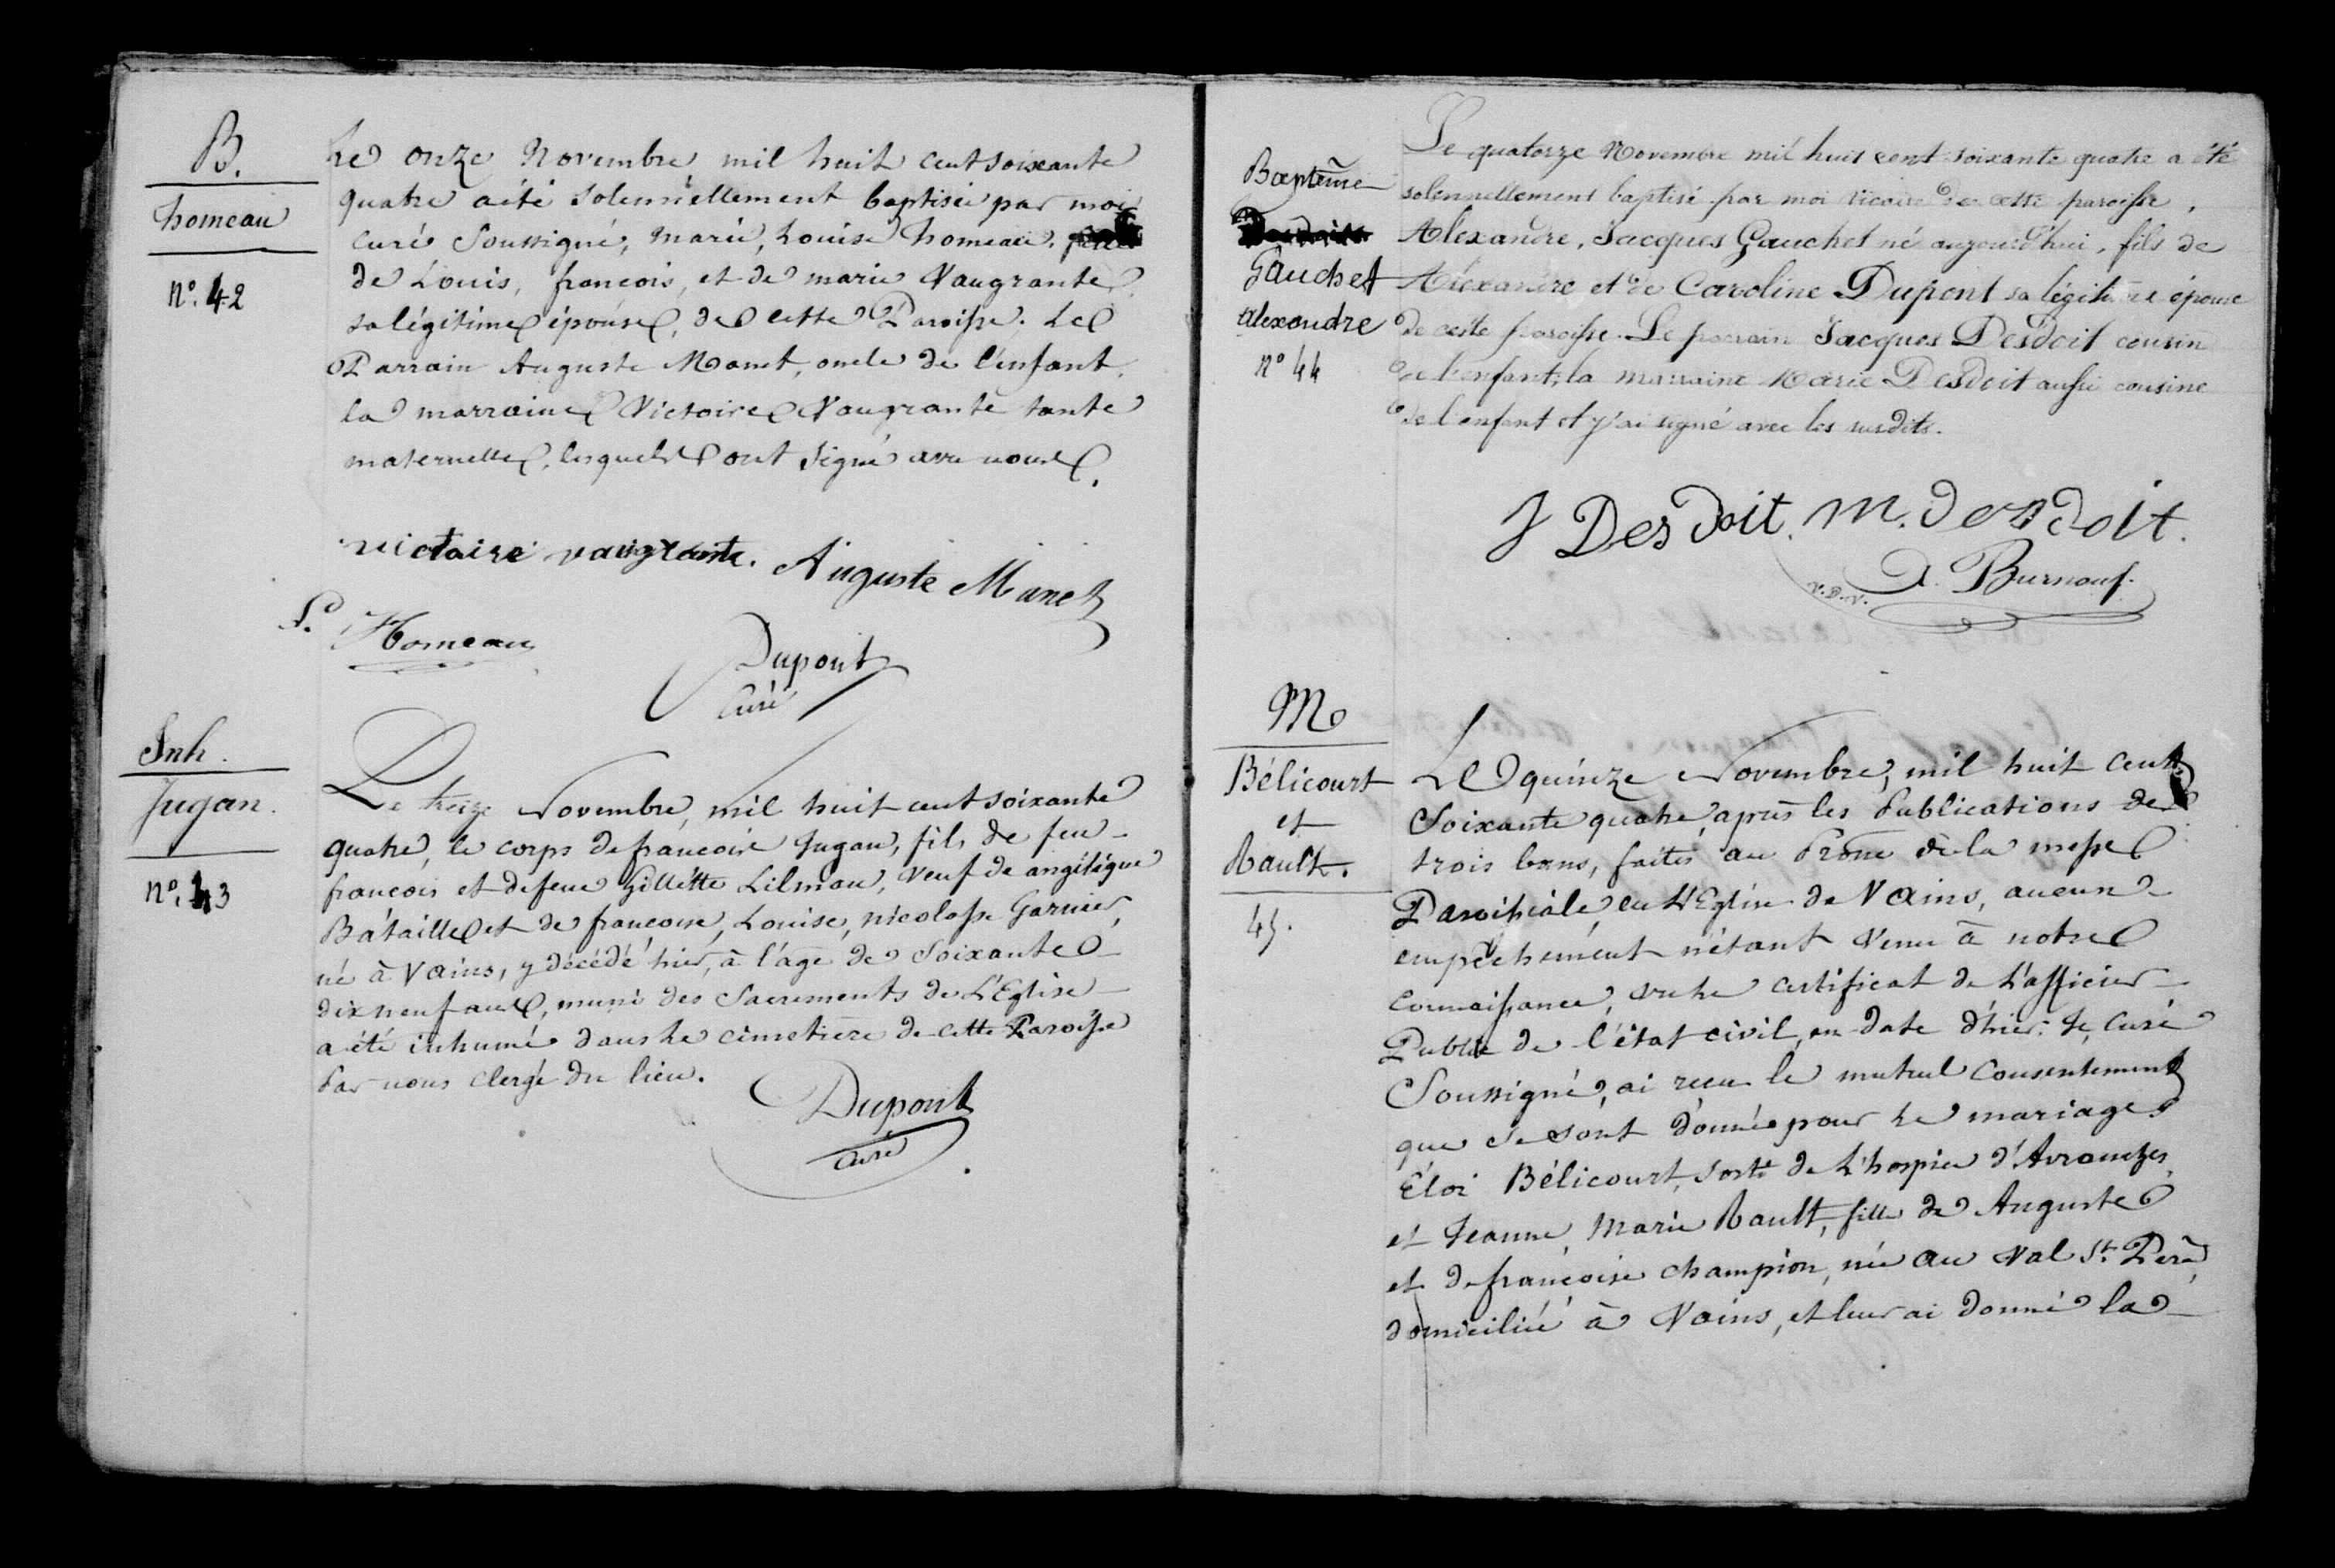 B.
homeau
N°. 42
Le onze Novembre mil huit cent soixante
quatre a été solennellement baptisée par moi
curé soussigné, marie, Louise homeau,
de Louis, françois, et de marie Vaugrante
sa légitime épouse, de cette Paroisse. Le
Parrain Auguste Manet, oncle de l'enfant,
la marraine Victoire Vaugrante tante
maternelle, lesquels ont signé avec nous.
victoire vaugrante. Auguste Manet
L. Homeau
Dupont
Curé
Inh.
Jugan.
N°. 43
Le treize Novembre, mil huit cent soixante
quatre, le corps de françois Jugan, fils de feu
françois et de feue Gillette Lilman, veuf de angélique
Bataille et de françoise, Louise, nicolasse Garnier,
né à Vains, y décédé hier, à l'âge de soixante
dix neuf ans, muni des Sacrements de L'Eglise
a été inhumé dans le cimetière de cette Paroisse
Par nous clergé du lieu.
Dupont
curé
Baptême
Gauchet
alexandre
n° 44
Le quatorze Novembre mil huit cent soixante quatre a été
solennellement baptisé par moi vicaire de cette paroisse,
Alexandre, Jacques Gauchet né aujourd'hui, fils de
Alexandre et de Caroline Dupont sa légitime épouse
de cette paroisse. Le parrain Jacques Desdoit cousin
de l'enfant, la marraine Marie Desdoit aussi cousine
de l'enfant et j'ai signé avec les susdits.
J Desdoit. M. Desdoit.
A. Burnouf.
v.D.V.
M
Bélicourt
et
Rault.
45.
Le quinze Novembre, mil huit cent
Soixante quatre, après les Publications de
trois bans, faites au Prône de la messe
Paroissiale en L'Eglise de Vains, aucun
empêchement n'étant venu à notre
connaissance, vu le certificat de L'officier
Public de l'état civil, en date d'hier: Je, Curé
Soussigné, ai reçu le mutuel consentement
que se sont donné pour le mariage
Éloi Bélicourt, sorti de L'hospice d'Avranches,
et Jeanne, Marie Rault, fille de Auguste
et de françoise champion, née au Val St. Père,
domiciliée à Vains, et leur ai donné la